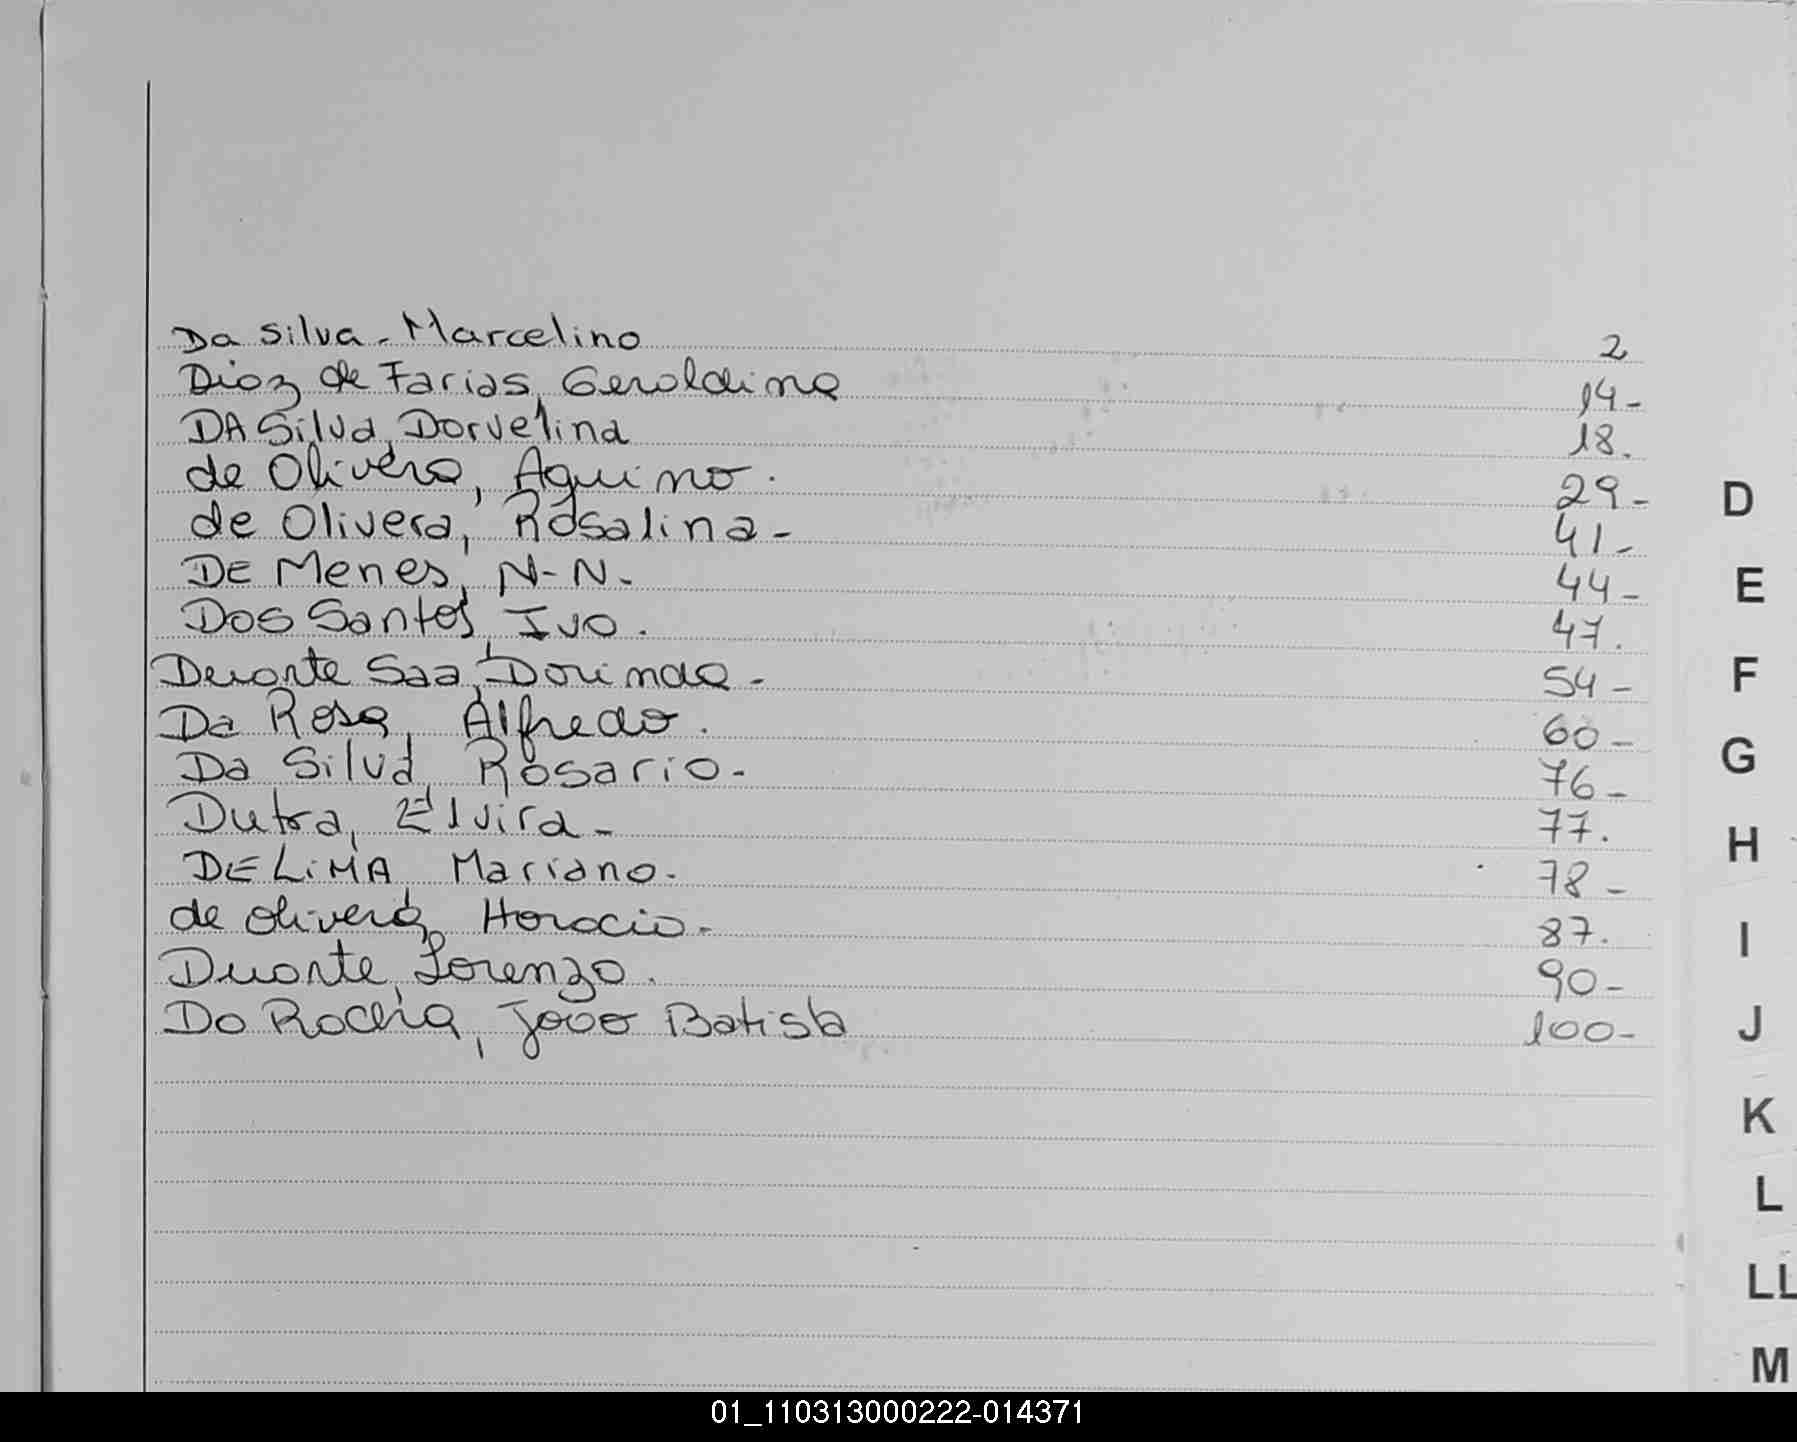 Da Silva - Marcelino 2
Diaz de Farias, Geroldina 14-
DA Silva, Dorvelina 18.
de Olivera, Aquino. 29-
de Olivera, Rosalina- 41-
DE Menes, N-N. 44-
Dos Santos, Ivo. 47.
Duarte Saa, Dorinda- 54-
Da Rosa, Alfredo. 60-
Da Silva, Rosario- 76-
Dutra, Elvira- 77.
DE LiMA, Mariano. 78-
de olivera, Horacio- 87.
Duarte, Lorenzo. 90-
Da Rocha, Joao Batista 100-
D
E
F
G
H
I
J
K
L
LL
M
01_110313000222-014371